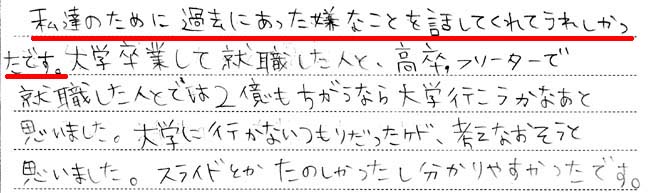 私達のために過去にあった嫌なことを話してくれてうれしかっ
たです。大学卒業して就職した人と、高卒，フリーターで
就職した人とでは2億もちがうなら大学行こうかなあと
思いました。大学に行かないつもりだったケド、考えなおそうと
思いました。スライドとかたのしかったし分かりやすかったです。